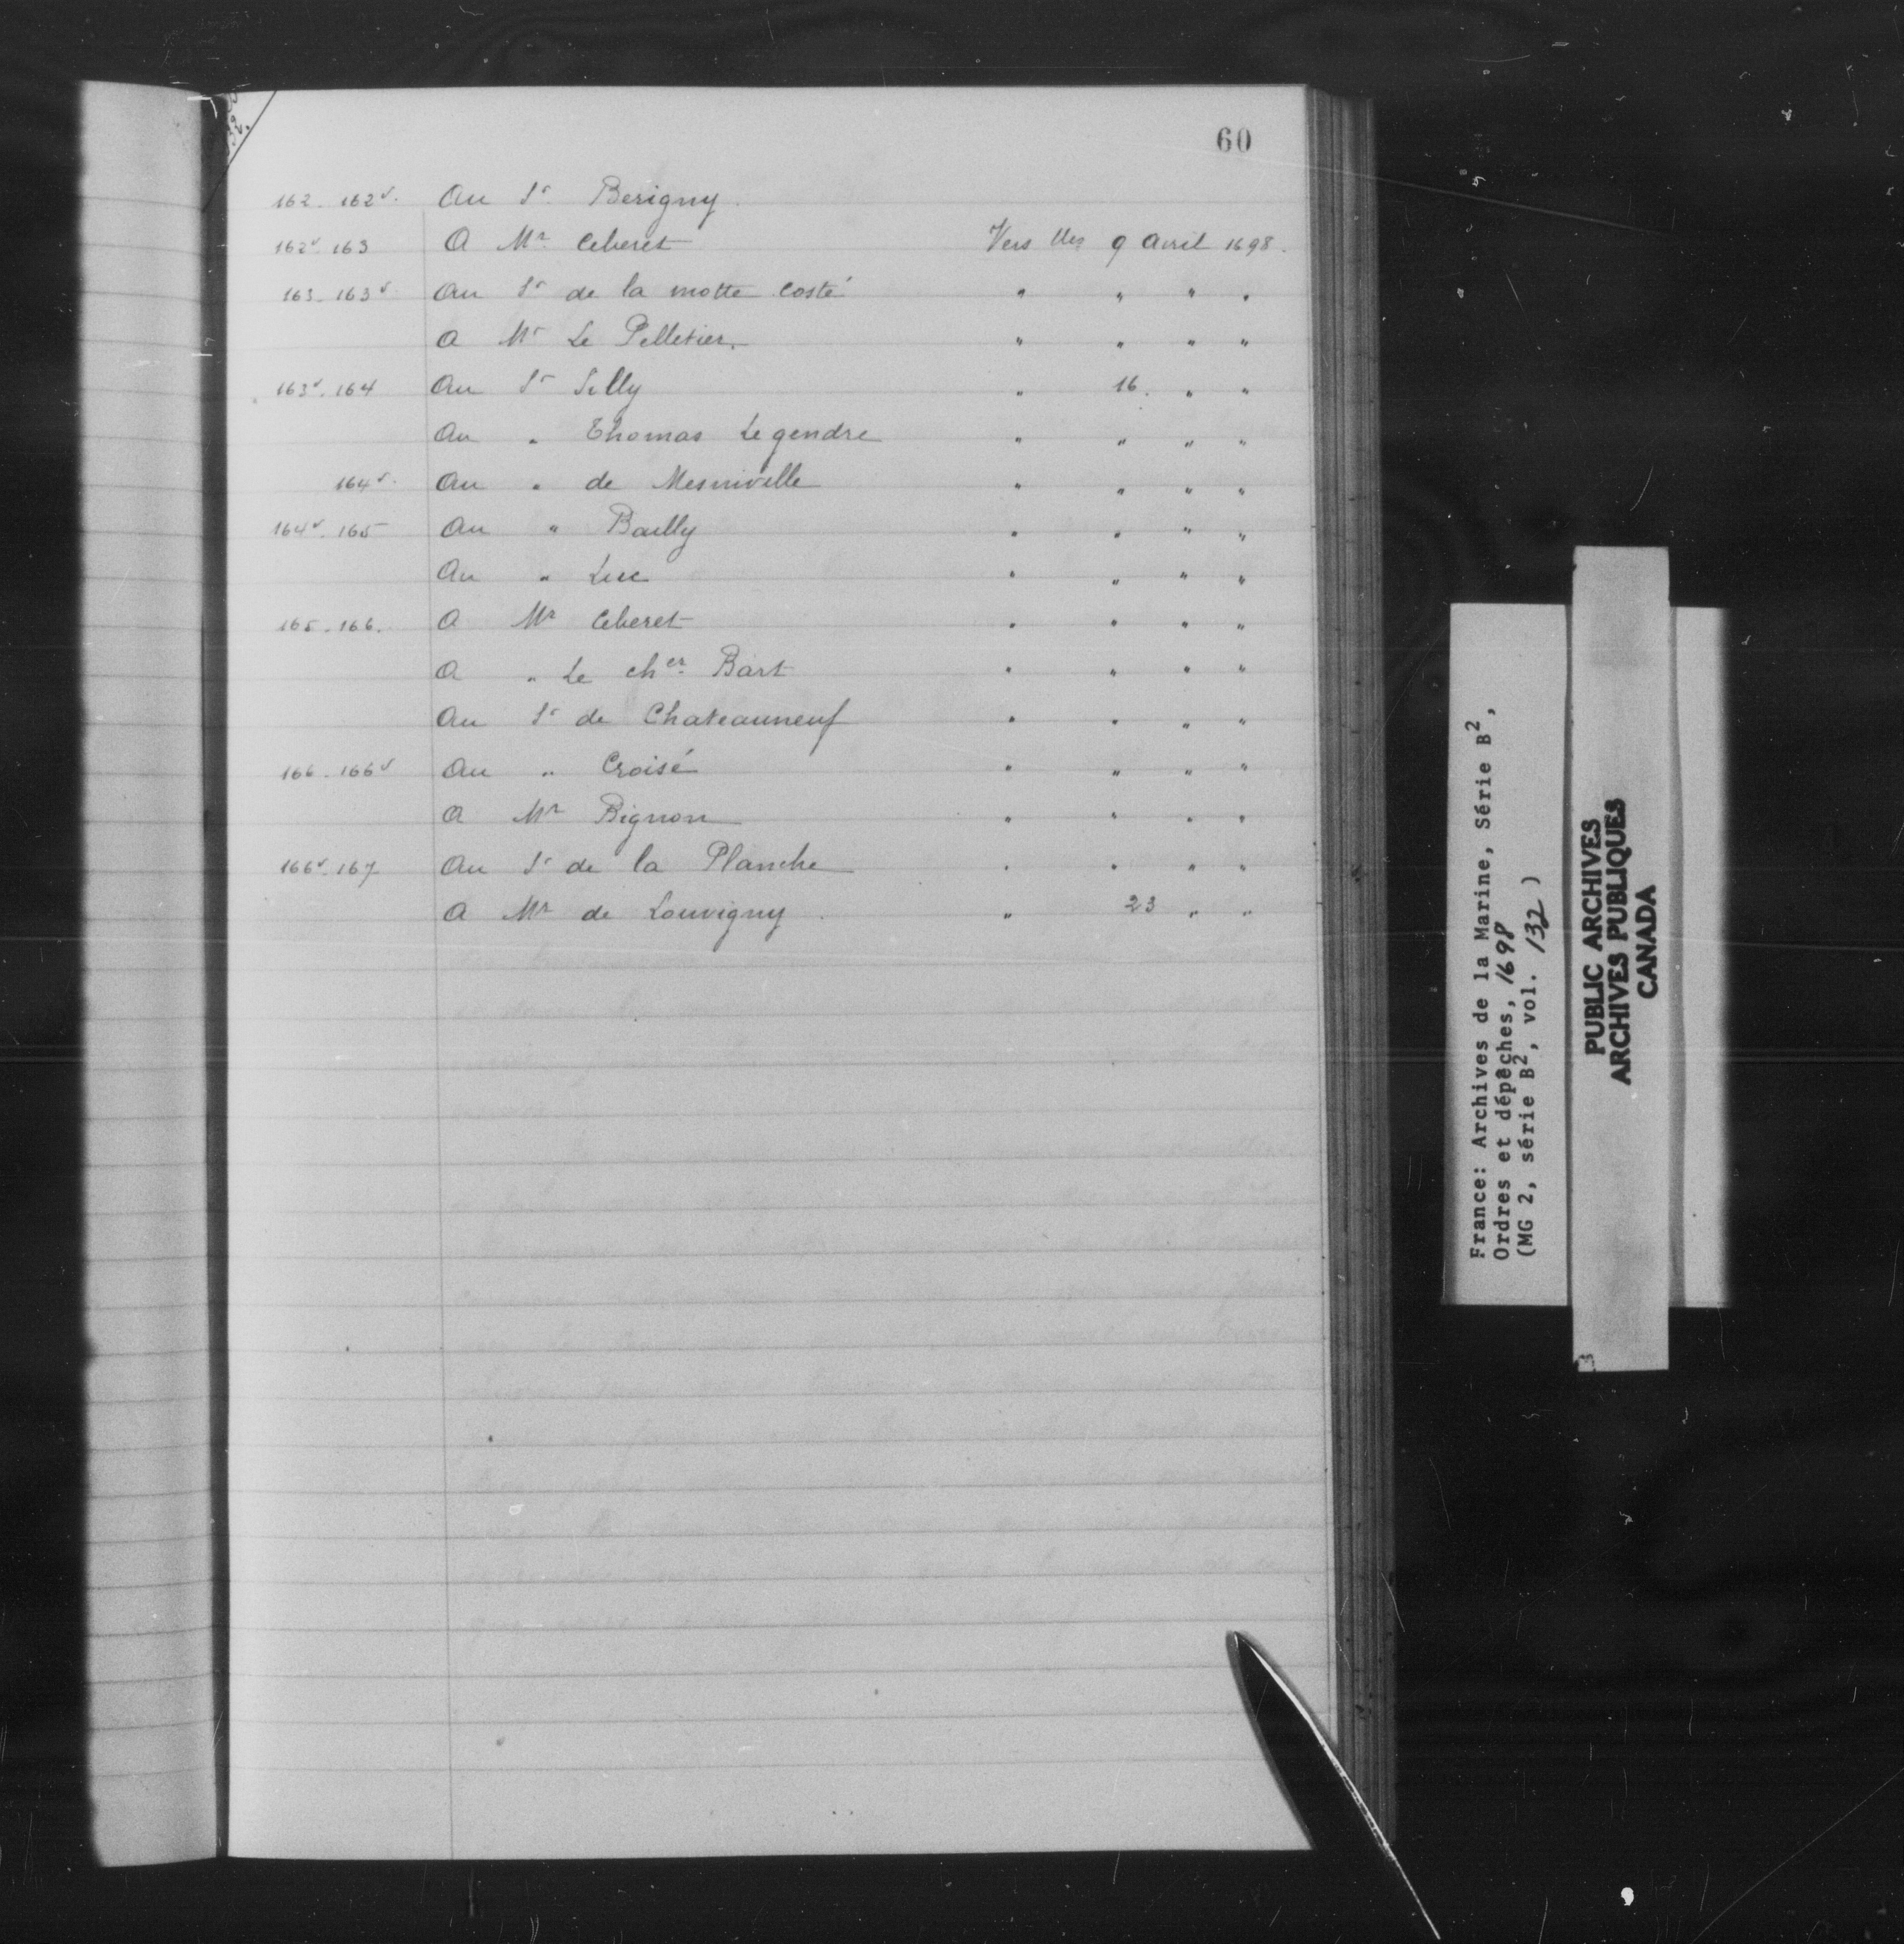 60
162. 162v. Au Sr Berigny.
162v. 163 A Mr Ceberet Vers lles 9 avril 1698.
163. 163v Au Sr de la motte costé " " " "
A Mr Le Pelletier. " " " "
163v. 164 Au Sr Silly " 16. " "
Au " Thomas Legendre " " " "
164v. Au " de Mesniville " " " "
164v. 165 Au " Bailly " " " "
Au " Luc " " " "
165. 166. A Mr Ceberet " " " "
A " Le cher. Bart " " " "
Au Sr de Chateauneuf " " " "
166. 166v Au " Croisé " " " "
A Mr Bignon " " " "
166v. 167 Au Sr de la Planche " " " "
A Mr de Louvigny. " 23 " "
France: Archives de la Marine, Série B2,
Ordres et dépêches, 1698
(MG 2, série B2, vol. 132)
PUBLIC ARCHIVES
ARCHIVES PUBLIQUES
CANADA